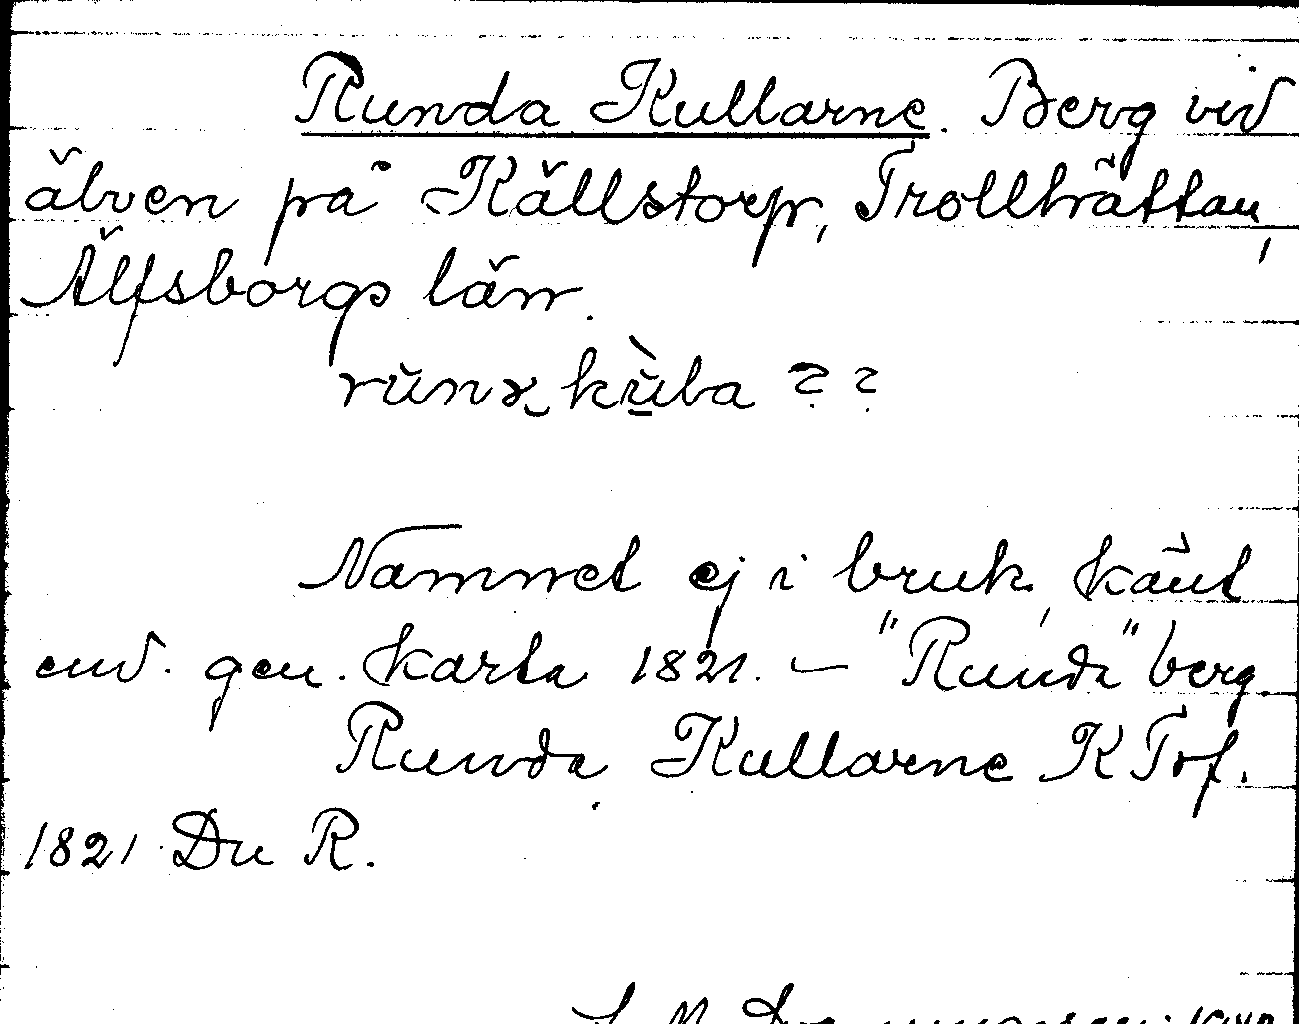 Runda Kullarne. Berg vid
älven på Källstorp, Trollhättan,
Älfsborgs län.
Namnet ej i bruk, känt
end. gen. karta 1821. — "Runda" berg.
Runda Kullarne K Trf.
1821 Du R.